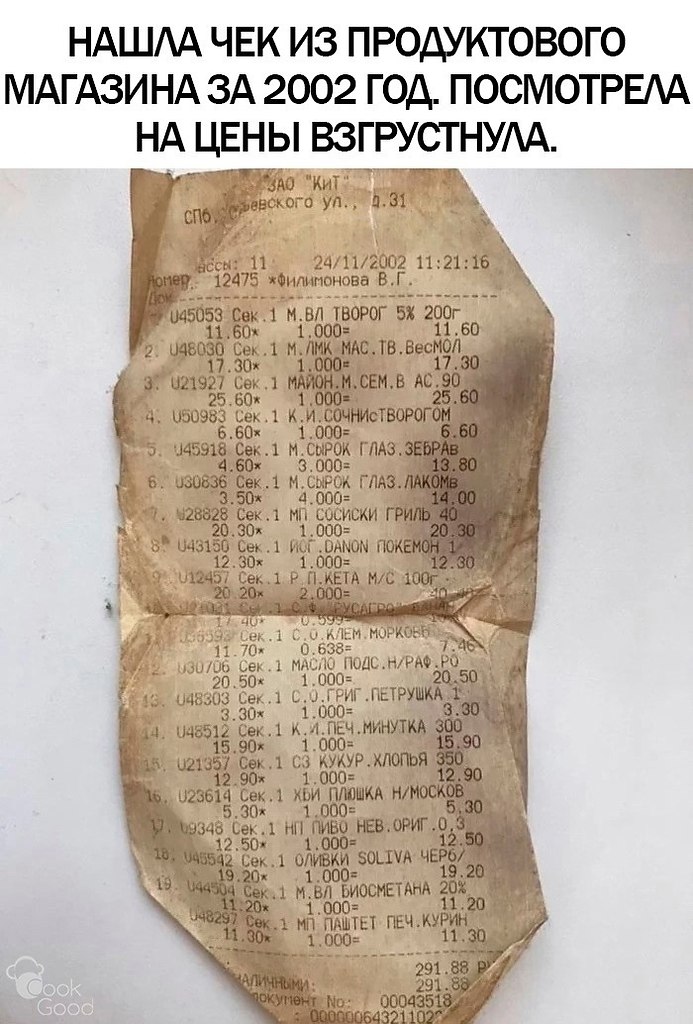 НАШЛА ЧЕК ИЗ ПРОДУКТОВОГО
МАГАЗИНА ЗА 2002 ГОД. ПОСМОТРЕЛА
НА ЦЕНЫ ВЗГРУСТНУЛА.
ЗАО "КиТ"
СПб, ул., д.31
ассы: 11 24/11/2002 11:21:16
Номер 12475 *Филимонова В.Г.
Док
U45053 Сек.1 М.ВЛ ТВОРОГ 5% 200г
11.60* 1.000= 11.60
2. U48030 Сек.1 М.ЛМК МАС.ТВ.ВесМОЛ
17.30* 1.000= 17.30
3. U21927 Сек.1 МАЙОН.М.СЕМ.В АС.90
25.60* 1.000= 25.60
4. U50983 Сек.1 К.И.СОЧНИсТВОРОГОМ
6.60* 1.000= 6.60
5. U45918 Сек.1 М.СЫРОК ГЛАЗ.ЗЕБРАв
4.60* 3.000= 13.80
6. U30836 Сек.1 М.СЫРОК ГЛАЗ.ЛАКОМв
3.50* 4.000= 14.00
7. U28828 Сек.1 МП СОСИСКИ ГРИЛЬ 40
20.30* 1.000= 20.30
8. U43150 Сек.1 ЙОГ.DANON ПОКЕМОН 1
12.30* 1.000= 12.30
9. U12457 Сек.1 Р.П.КЕТА М/С 100г
20.20* 2.000= 40.40
Сек.1 С.Ф. РУСАГРО
17.40* 0.599=
Сек.1 С.О.КЛЕМ.МОРКОВЬ
11.70* 0.638= 7.46
12. U30706 Сек.1 МАСЛО ПОДС.Н/РАФ.РО
20.50* 1.000= 20.50
13. U48303 Сек.1 С.О.ГРИГ.ПЕТРУШКА 1
3.30* 1.000= 3.30
14. U48512 Сек.1 К.И.ПЕЧ.МИНУТКА 300
15.90* 1.000= 15.90
15. U21357 Сек.1 СЗ КУКУР.ХЛОПЬЯ 350
12.90* 1.000= 12.90
16. U23614 Сек.1 ХБИ ПЛЮШКА Н/МОСКОВ
5.30* 1.000= 5.30
17. U9348 Сек.1 НП ПИВО НЕВ.ОРИГ.0,3
12.50* 1.000= 12.50
18. U45542 Сек.1 ОЛИВКИ SOLIVA ЧЕР6/
19.20* 1.000= 19.20
19. U44504 Сек.1 М.ВЛ БИОСМЕТАНА 20%
11.20* 1.000= 11.20
U48297 Сек.1 МП ПАШТЕТ ПЕЧ.КУРИН
11.30* 1.000= 11.30
291.88
НАЛИЧНЫМИ: 291.88
документ No: 00043518
: 000000643211022
Cook
Good